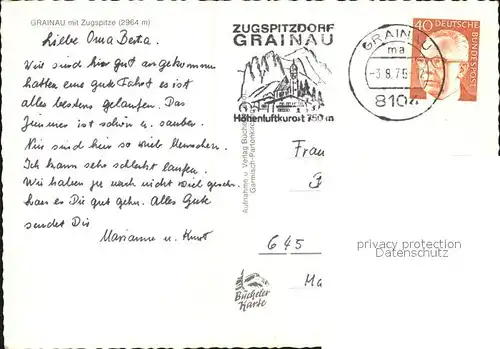 GRAINAU mit Zugspitze (2964 m)
Liebe Oma Berta.
Wir sind hier gut angekommen
hatten eine gute Fahrt es ist
alles bestens gelaufen. Das
Zimmer ist schön u. sauber.
Nur sind hier so viele Menschen.
Ich kann sehr schlecht laufen.
Wir haben ja noch nicht viel gesehn.
lass es Dir gut gehn. Alles Gute
sendet Dir
Marianne u. Kurt
ZUGSPITZDORF
GRAINAU
Höhenluftkurort 750 m
GRAINAU
ma
-3.8.75-12
8104
40 DEUTSCHE
BUNDESPOST
Aufnahme u. Verlag Büchele
Garmisch-Partenki
Frau
645
Ma
Büchele
Karte
privacy protection
Datenschutz